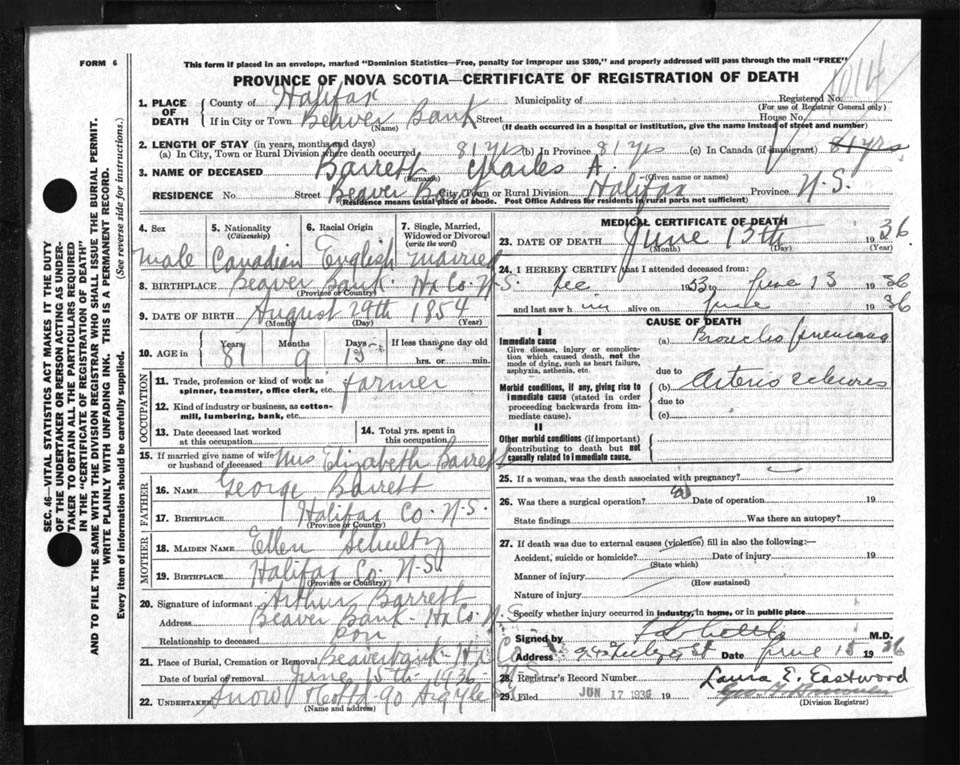 FORM 6
This form if placed in an envelope, marked "Dominion Statistics—Free, penalty for improper use $300," and properly addressed will pass through the mail "FREE"
PROVINCE OF NOVA SCOTIA—CERTIFICATE OF REGISTRATION OF DEATH
1014
SEC. 46—VITAL STATISTICS ACT MAKES IT THE DUTY
OF THE UNDERTAKER OR PERSON ACTING AS UNDER-
TAKER TO OBTAIN ALL THE PARTICULARS REQUIRED
IN THE "CERTIFICATE OF REGISTRATION OF DEATH"
AND TO FILE THE SAME WITH THE DIVISION REGISTRAR WHO SHALL ISSUE THE BURIAL PERMIT.
WRITE PLAINLY WITH UNFADING INK. THIS IS A PERMANENT RECORD.
Every item of information should be carefully supplied. (See reverse side for instructions.)
1. PLACE OF DEATH
County of Halifax Municipality of Registered No.
(For use of Registrar General only)
If in City or Town Beaver Bank Street House No.
(Name) (If death occurred in a hospital or institution, give the name instead of street and number)
2. LENGTH OF STAY (in years, months and days)
(a) In City, Town or Rural Division where death occurred 81 yrs (b) In Province 81 yrs (c) In Canada (if immigrant) 81 yrs
3. NAME OF DECEASED Barrett Charles A.
(Surname) (Given name or names)
RESIDENCE No. Street Beaver Bank City, Town or Rural Division Halifax Province N.S.
(Residence means usual place of abode. Post Office Address for residents in rural parts not sufficient)
4. Sex
5. Nationality (Citizenship)
6. Racial Origin
7. Single, Married, Widowed or Divorced (write the word)
male Canadian English married
8. BIRTHPLACE Beaver Bank Hx Co. N.S.
(Province or Country)
9. DATE OF BIRTH August 29th 1854
(Month) (Day) (Year)
10. AGE in Years Months Days If less than one day old
81 9 15 hrs. or min.
OCCUPATION
11. Trade, profession or kind of work as spinner, teamster, office clerk, etc. farmer
12. Kind of industry or business, as cotton-mill, lumbering, bank, etc.
13. Date deceased last worked at this occupation
14. Total yrs. spent in this occupation
15. If married give name of wife or husband of deceased Mrs Elizabeth Barrett
FATHER
16. NAME George Barrett
17. BIRTHPLACE Halifax Co. N.S.
(Province or Country)
MOTHER
18. MAIDEN NAME Ellen Schultz
19. BIRTHPLACE Halifax Co. N.S.
(Province or Country)
20. Signature of informant Arthur Barrett
Address Beaver Bank - Hx Co. N.S.
Relationship to deceased son
21. Place of Burial, Cremation or Removal Beaverbank - Hx Co
Date of burial or removal June 15th 1936
22. UNDERTAKER Snow 90 Argyle
(Name and address)
MEDICAL CERTIFICATE OF DEATH
23. DATE OF DEATH June 13th 1936
(Month) (Day) (Year)
24. I HEREBY CERTIFY that I attended deceased from:
1933 to June 13 1936
and last saw him alive on June 1936
CAUSE OF DEATH
I
Immediate cause
Give disease, injury or complication which caused death, not the mode of dying, such as heart failure, asphyxia, asthenia, etc.
(a)
due to
Morbid conditions, if any, giving rise to immediate cause (stated in order proceeding backwards from immediate cause).
(b) Arterio
due to
(c)
II
Other morbid conditions (if important) contributing to death but not causally related to I immediate cause.
25. If a woman, was the death associated with pregnancy?
26. Was there a surgical operation? Date of operation 19
State findings Was there an autopsy?
27. If death was due to external causes (violence) fill in also the following:—
Accident, suicide or homicide? Date of injury 19
(State which)
Manner of injury
(How sustained)
Nature of injury
Specify whether injury occurred in industry, in home, or in public place
Signed by M.D.
Address St Date June 15 1936
28. Registrar's Record Number Laura E. Eastwood
29. Filed JUN 17 1936 19
(Division Registrar)